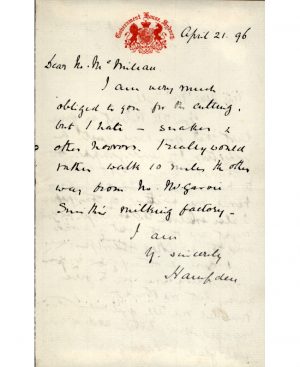 Government House, Sydney
April 21. 96
Dear Mr. McMillan
I am very much
obliged to you for the cutting.
but I hate - snakes &
other horrors. I really would
rather walk 10 miles the other
way from Mr. McGarvie
Smith's milking factory -
I am
Y. sincerely
Hampden